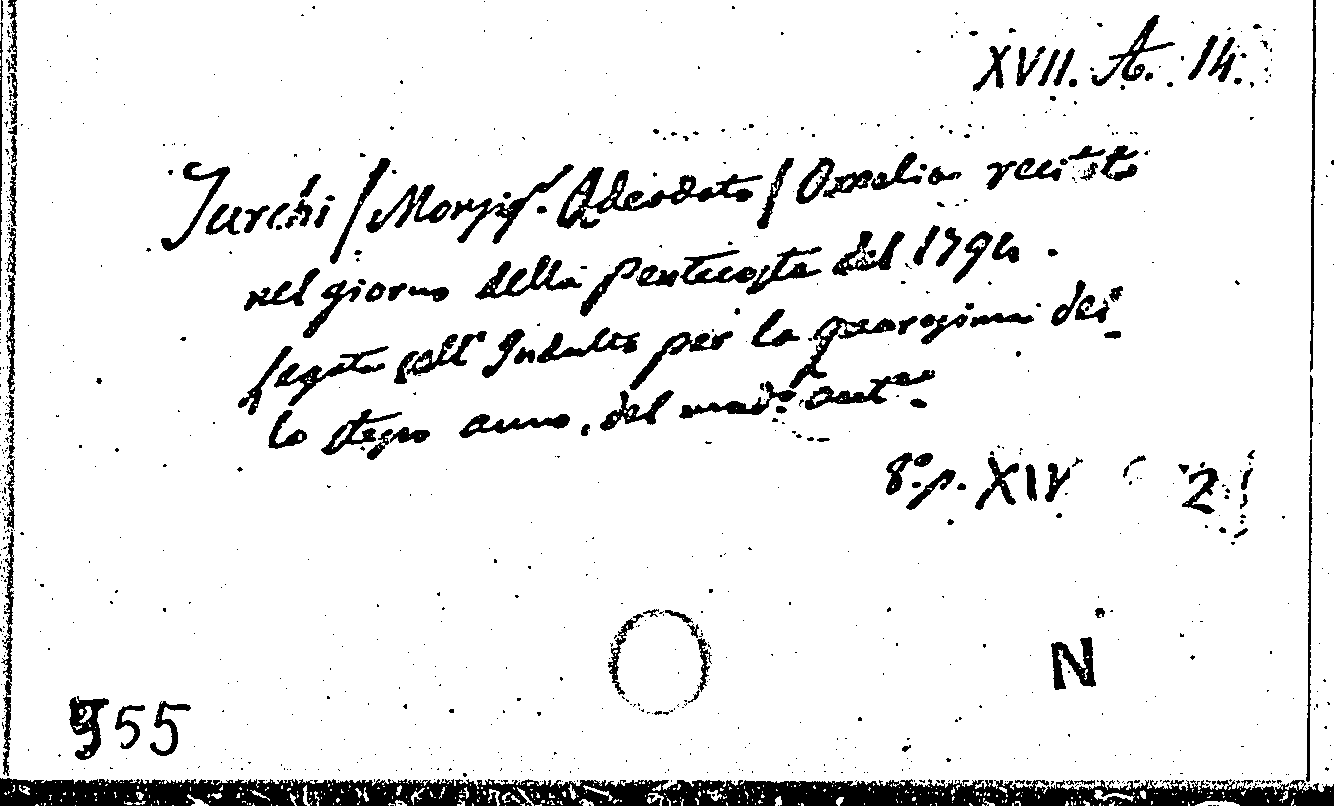 XVII. A. 14.
Turchi / Monsigr. Adeodato / Omelia recitata
nel giorno della Pentecoste del 1794.
legata coll' Indulto per la quaresima del-
lo stesso anno, del mede. aut.re
8.° p. XIV 2
N
955